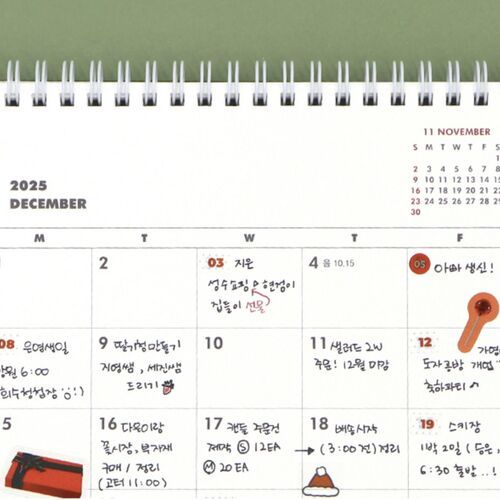 11 NOVEMBER
S M T W T F S
1
2 3 4 5 6 7 8
9 10 11 12 13 14 15
16 17 18 19 20 21 22
23 24 25 26 27 28 29
30
2025
DECEMBER
M T W T F
1
2
03 지은
성수쇼핑 현정이
집들이 선물
4 음 10.15
05 아빠 생신!
08 은영생일
6:00
희수청첩장
9 딸기청만들기
지영쌤, 세진쌤
드리기
10
11 샐러드 2W
주문! 12월 마감
12
도자공방 개업
축하파티
5
16 다육이랑
꽃시장, 부자재
구매 / 정리
(고터 11:00)
17 캔들 주문건
제작 Ⓢ 12EA
Ⓜ 20EA
18 배송시작
→ (3:00 전) 정리
19 스키장
1박 2일
6:30 출발 ..!